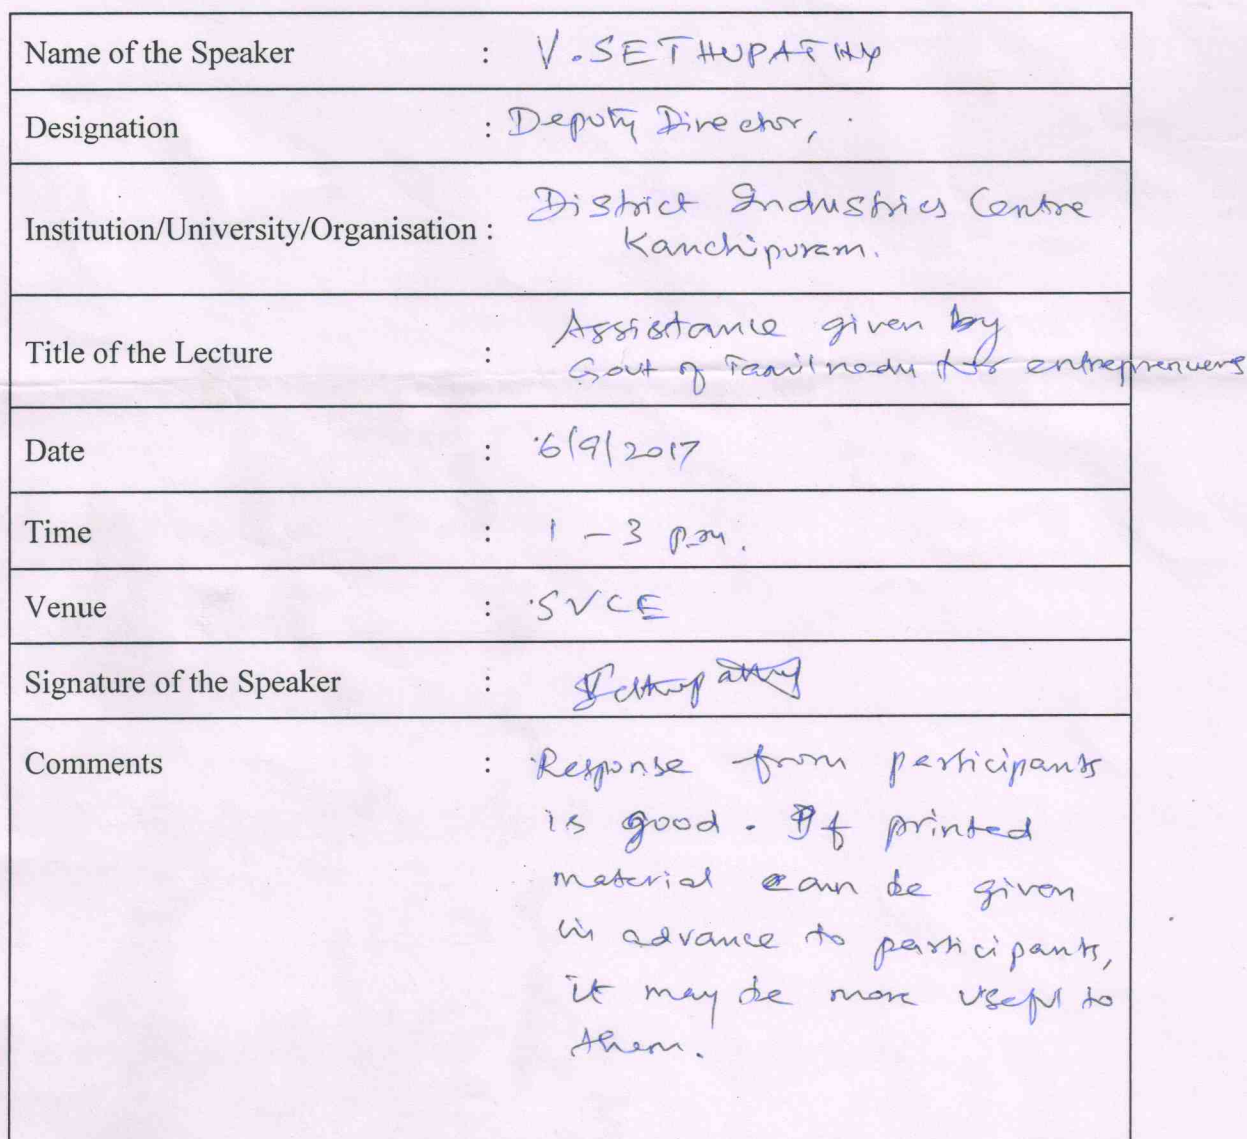 Name of the Speaker : V. SETHUPATHY
Designation : Deputy Director,
Institution/University/Organisation : District Industries Centre
Kanchipuram.
Title of the Lecture : Assistance given by
Govt of Tamilnadu for entreprenuers
Date : 6/9/2017
Time : 1 - 3 p.m.
Venue : SVCE
Signature of the Speaker : Vsethupathy
Comments : Response from participants
is good. If printed
material can be given
in advance to participants,
it may be more useful to
them.